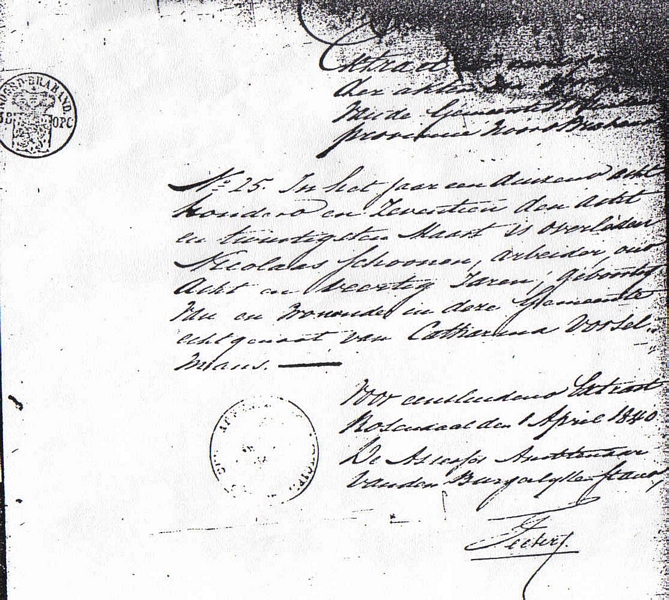 NOORD-BRABAND
38 OPC
Extract
der akten
van de Gemeente
provincie Noord Braband
No 25. In het Jaar een duizend acht
honderd en Zeventien den acht
en twintigsten Maart is overleden
Nicolaas Schoonen, arbeider, oud
Acht en veertig Jaren, geboortig
Van en Wonende in deze Gemeente
echtgenoot van Catharina Vossel-
mans.
Voor eensluidend Extract
Rosendaal den 1 April 1840
De Ambtenaar
van den Burgerlijken Stand,